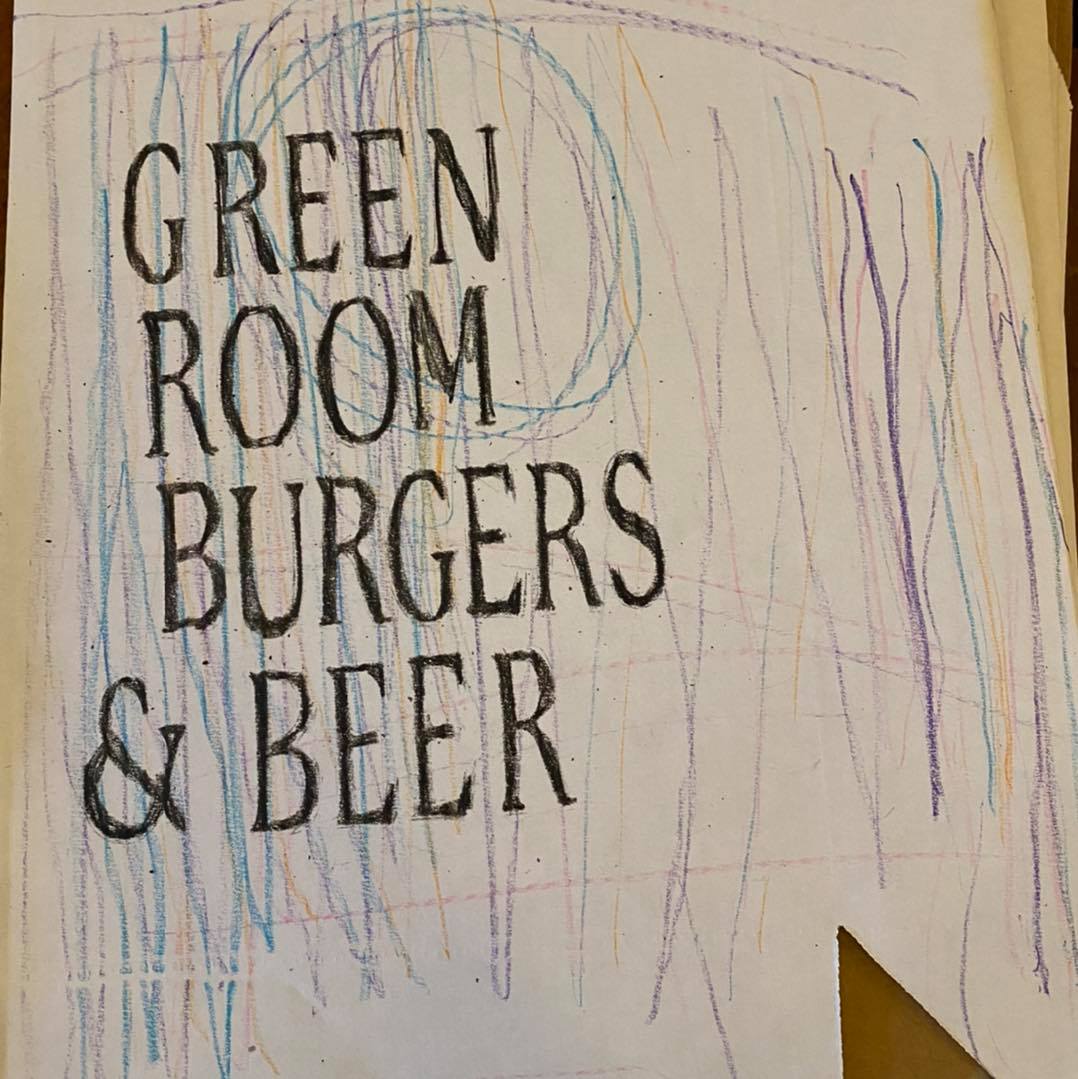 GREEN
ROOM
BURGERS
& BEER